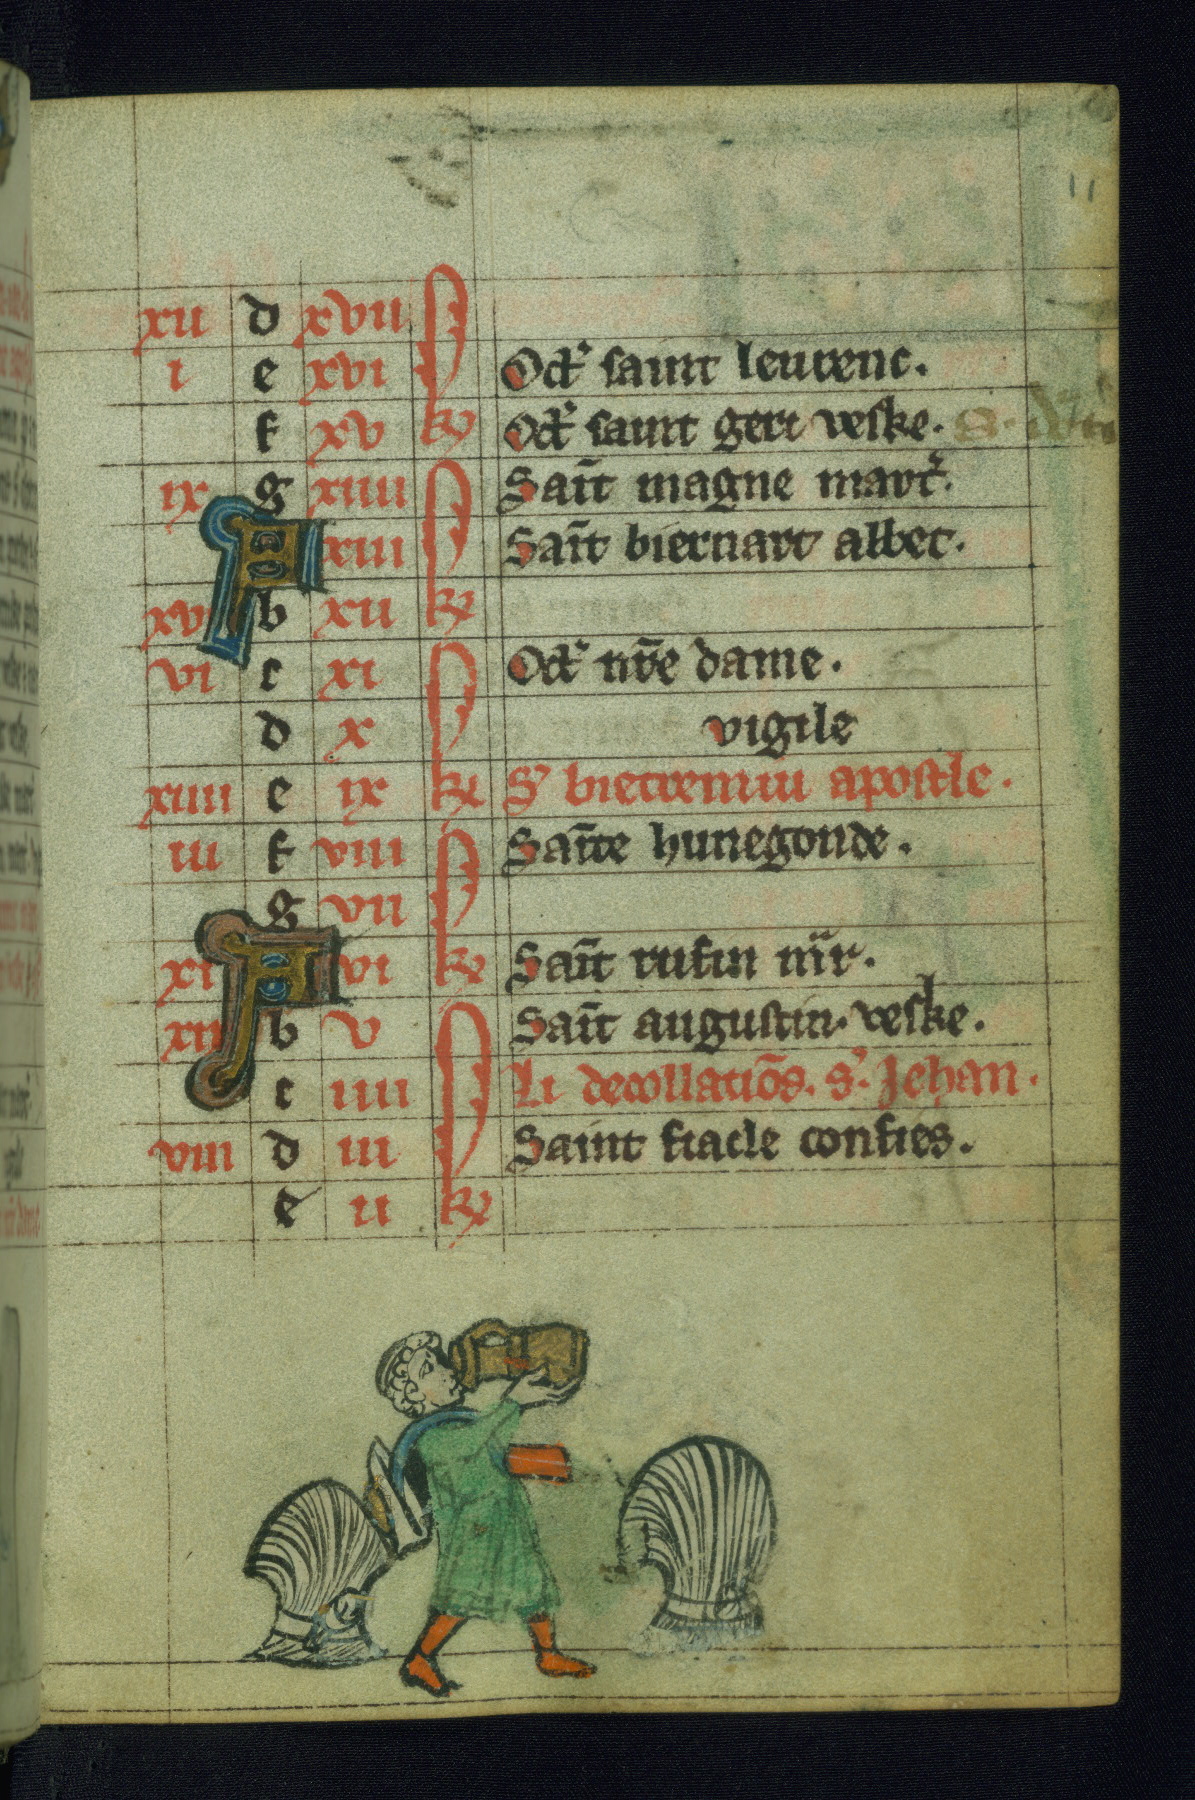 11
xii d xvii
i e xvi kł Oct' saint leurenc.
f xv Oct' saint geri veske. S.
ix g xiiii Sait̄ magne mart'.
A xiii kł Sait̄ biernart abbet.
xvii b xii
vi c xi Oct' nr̄e dame.
d x kł vigile
xiiii e ix S' bietremiu apostle.
iii f viii Sait̄e hunegonde.
g vii kł
xi A vi Sait̄ rufin mr̄.
xix b v Sait̄ augustin. veske.
c iiii kł Li decollatiōs. s'. Jehan.
viii d iii Saint fiacle confies.
e ii